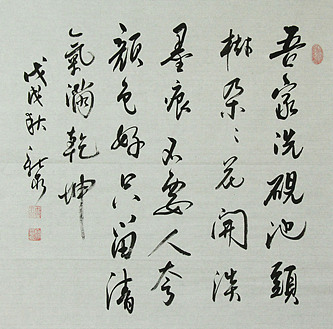 吾家洗硯池頭
樹朵〻花開淡
墨痕不要人夸
顏色好只留清
氣滿乾坤
戊戌秋